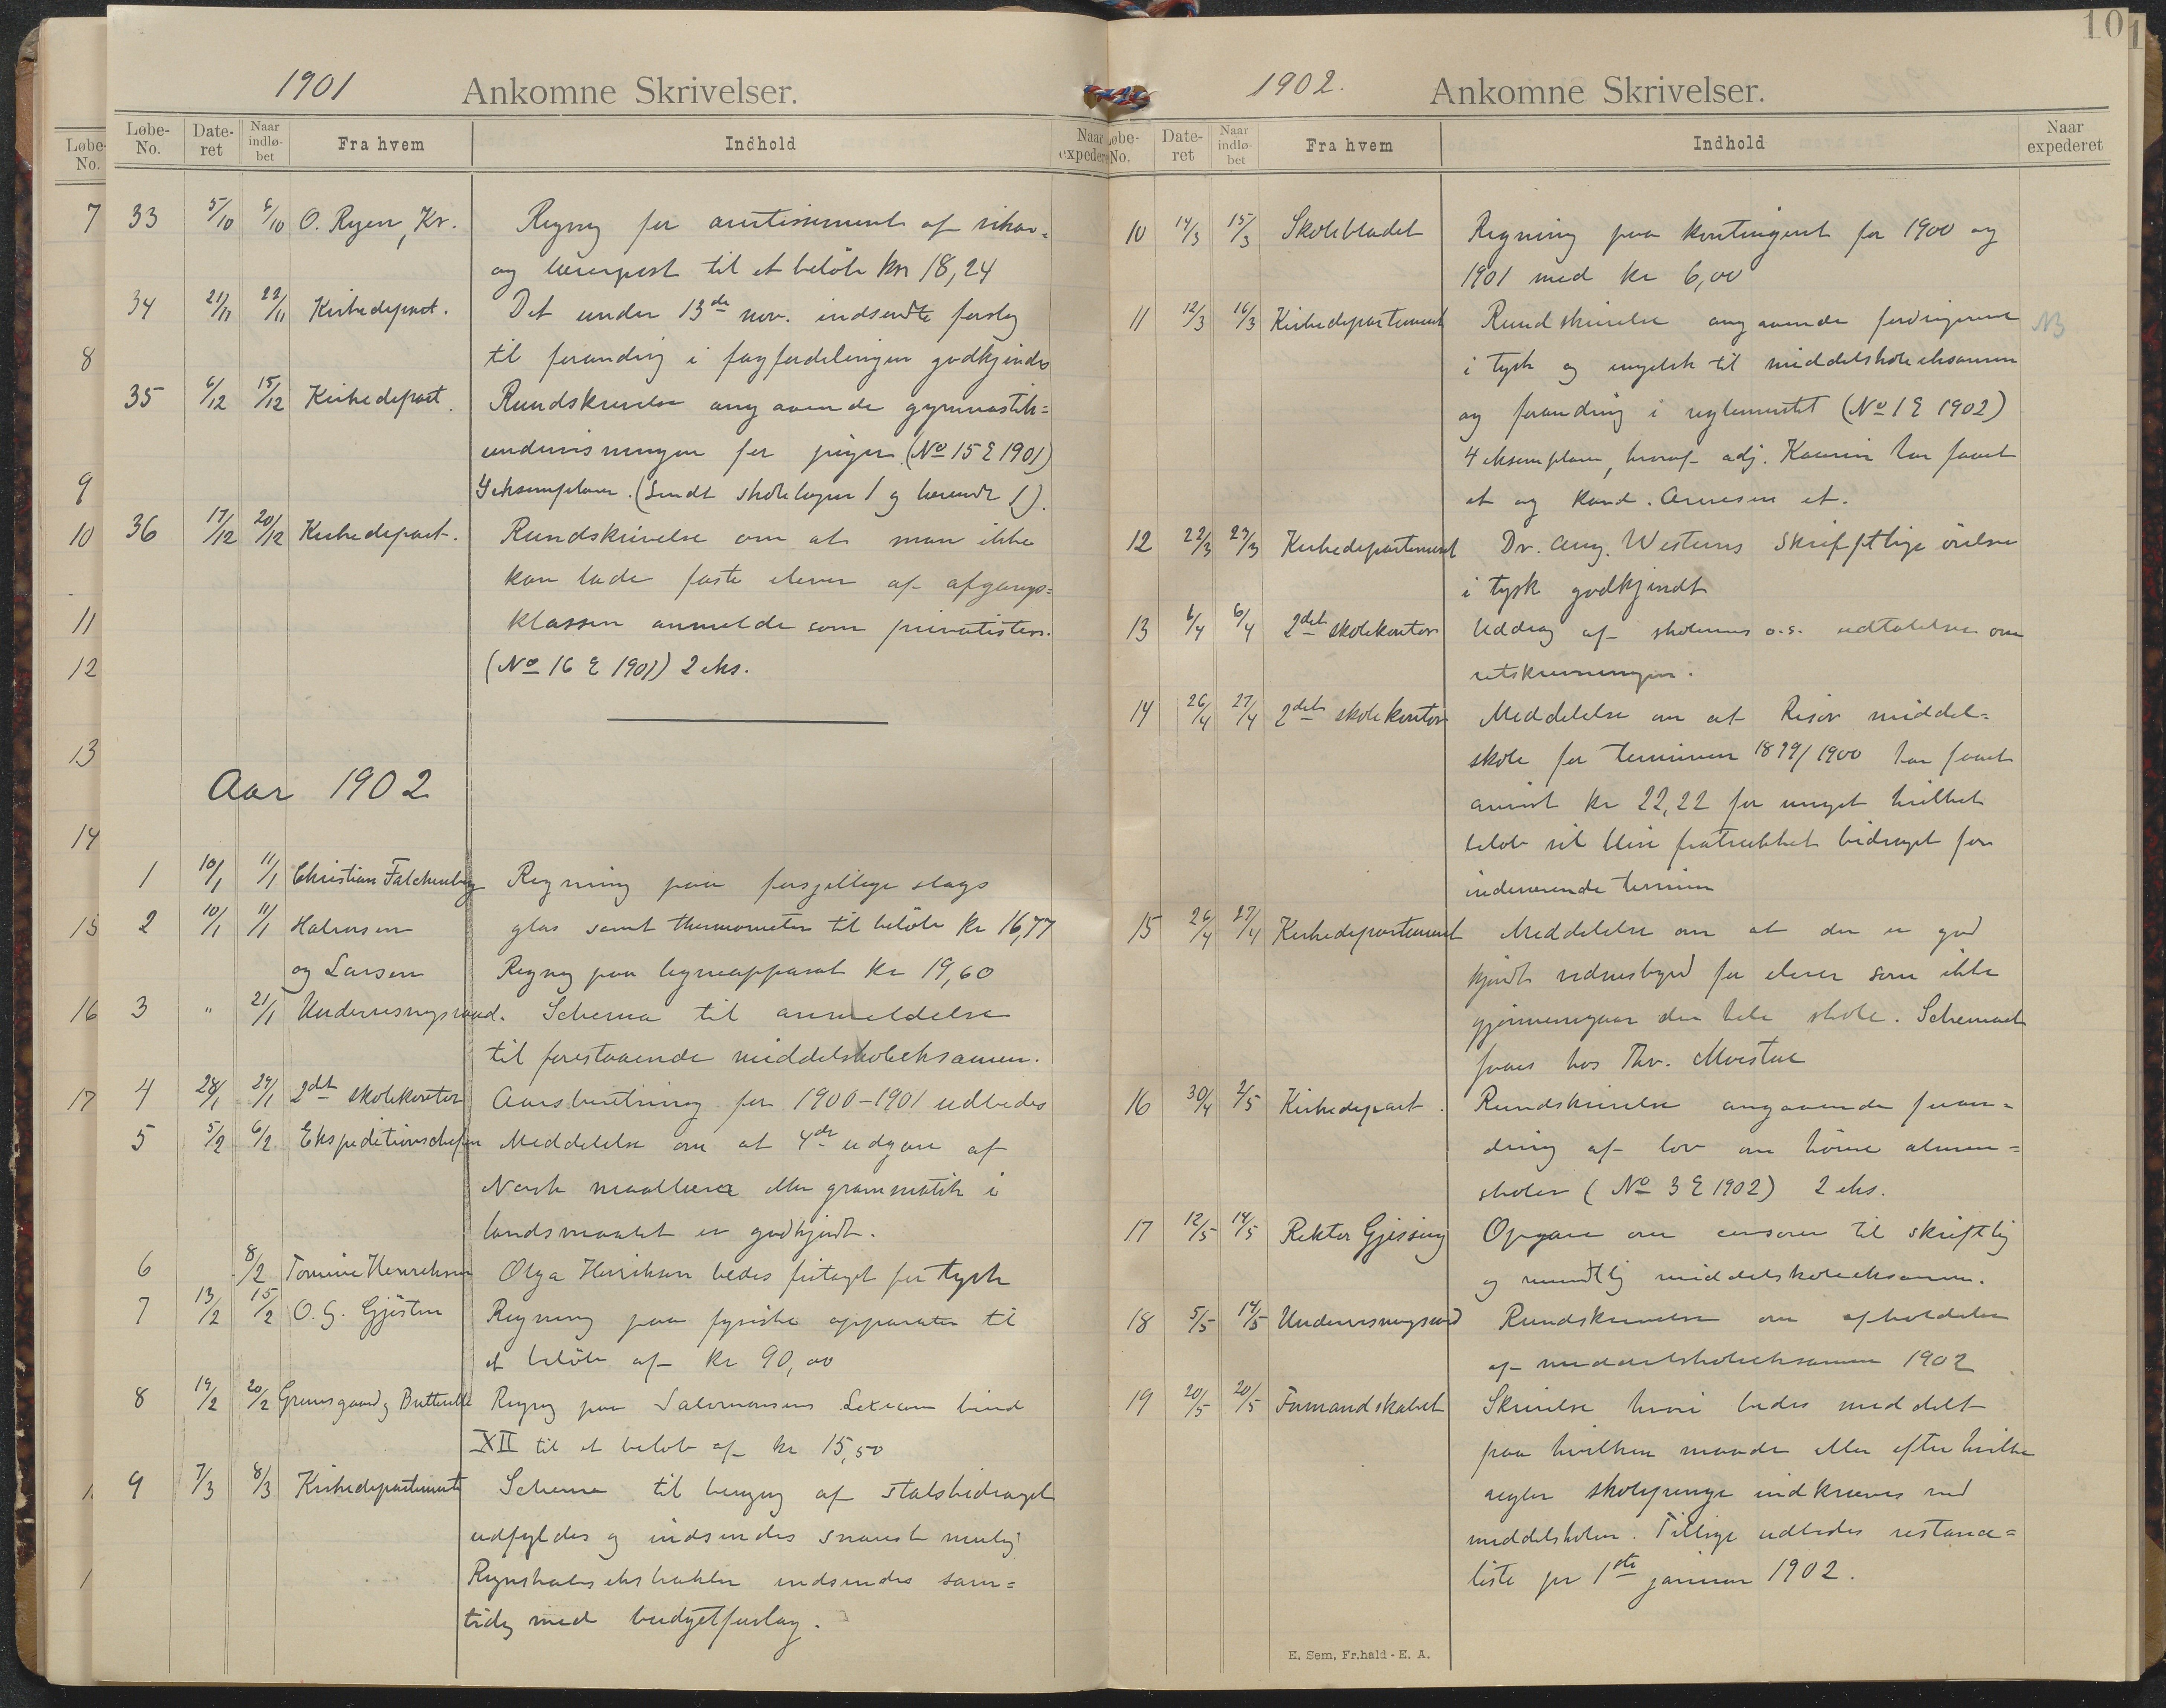 10
1901 Ankomne Skrivelser.
Løbe-No. Dateret Naar indløbet Fra hvem Indhold Naar
33 5/10 6/10 O. Ryen, Kr. Regng for avertissement af vikar=
og lærerpost til et beløb kr 18,24
34 21/11 22/11 Kirkedepart. Det under 13de nov. indsendte forslag
til forandring i fagfordelingen godkjendes
35 6/12 15/12 Kirkedepart. Rundskrivelse angaaende gymnastik=
undervisningen for piger. (No 15 E 1901)
4 eksemplarer. (Sendt skolelægen 1 og 1).
36 17/12 20/12 Kirkedepart. Rundskrivelse om at man ikke
kan lade faste elever af afgangs=
klassen anmelde som privatister.
(No 16 E 1901) 2 eks.
Aar 1902
1 10/1 11/1 Christian Falchenberg Regning paa forsjellige slags
2 10/1 11/1 Halvorsen glas samt thermometer til beløb kr 16,77
og Larsen Regng paa kr 19,60
3 " 21/1 Undervisningsraad. Schema til anmeldelse
til forestaaende middelskoleeksamen.
4 28/1 29/1 2det skolekontor Aarsberetning for 1900-1901 udbedes
5 5/2 6/2 Ekspeditionschefen Meddelelse om at 4de udgave af
Norsk maallære eller grammatik i
landsmaalet er godkjendt.
6 8/2 Tomine Henriksen Olga Henriksen bedes fritaget for tysk
7 13/2 15/2 O. G. Gjøsteen Regning paa fysiske apparater til
et beløb af kr 90,00
8 19/2 20/2 Regng paa Salomonsens Lexicon bind
XII til et beløb af kr 15,50
9 7/3 8/3 Kirkedepartementet Schema til beregng af statsbidraget
udfyldes og indsendes snarest mulig
Regnskabsekstrakter indsendes sam=
tidig med budgetforslag.
1902. Ankomne Skrivelser.
No. Dateret Naar indløbet Fra hvem Indhold Naar expederet
10 14/3 15/3 Skolebladet Regning paa kontingent for 1900 og
1901 med kr 6,00
11 12/3 16/3 Kirkedepartement Rundskrivelse angaaende fordringerne NB
i tysk og engelsk til middelskoleeksamen
og forandring i reglementet (No 1 E 1902)
4 eksemplarer, hvoraf adj. Kaurin har faaet
et og kand. Arnesen et.
12 22/3 23/3 Kirkedepartement Dr. Aug. Westerns Skriftlige øvelser
i tysk godkjendt
13 6/4 6/4 2det skolekontor Uddrag af skolernes o.s. udtalelser om
retskrivningen.
14 26/4 27/4 2det skolekontor Meddelelse om at Risør middel=
skole for terminen 1899/1900 har faaet
anvist kr 22,22 for meget hvilket
beløb vil blive fratrukket bidraget for
indeværende termin
15 26/4 27/4 Kirkedepartement Meddelelse om at der er god
kjendt vidnesbyrd for elever som ikke
gjennemgaar den hele skole. Schemaet
faaes hos Thv. Moestue
16 30/4 2/5 Kirkedepart. Rundskrivelse angaaende foran=
dring af lov om høiere almen=
skoler (No 3 E 1902) 2 eks.
17 12/5 14/5 Rektor Gjessing Opgave om censorer til skriftlig
og mundtlig middelskoleeksamen.
18 5/5 14/5 Undervisningsraad Rundskrivelse om afholdelse
af middelskoleeksamen 1902
19 20/5 20/5 Formandskabet Skrivelse hvori bedes meddelt
paa hvilken maade eller efter hvilke
regler skolepenge indkræves ved
middelskolen. Tillige udbedes restance=
liste pr 1ste januar 1902.
E. Sem, Fr.hald - E. A.